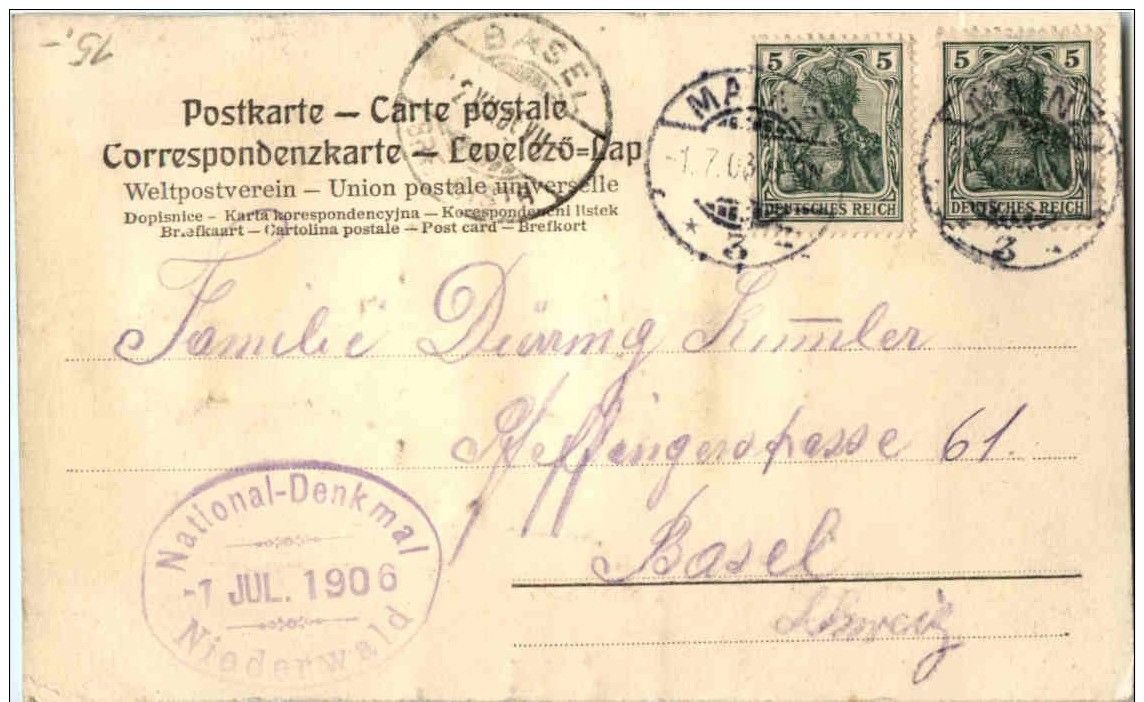 15.-
BASEL
Postkarte – Carte postale
Correspondenzkarte – Levelező=Lap
Weltpostverein – Union postale universelle
Dopisnice – Karta korespondencyjna – Korespondenčni listek
Brefkaart – Cartolina postale – Post card – Brefkort
5 5
DEUTSCHES REICH
5 5
DEUTSCHES REICH
MAINZ
-1.7.06
* 3 *
MAINZ
3 *
Familie Düring Kum̅ler
Pfeffingerstrasse 61.
Basel
Schweiz
National-Denkmal
-1 JUL. 1906
Niederwald